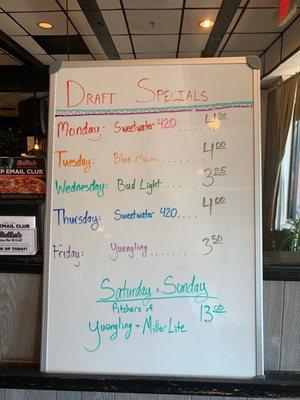 DRAFT SPECIALS
Monday: Sweetwater 420 ..... 4.00
Tuesday: Blue Moon ........ 4.00
Wednesday: Bud Light ....... 3.25
Thursday: Sweetwater 420 .... 4.00
Friday: Yuengling ....... 3.50
Saturday + Sunday
Pitchers of
Yuengling + Miller Lite 13.00
EMAIL CLUB
EMAIL CLUB
Bella's
Bar & Grill
UP TODAY!